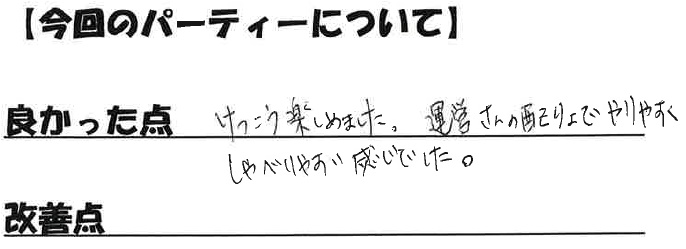 【今回のパーティーについて】
良かった点 けっこう楽しめました。運営さんの配りょでやりやすく
しゃべりやすい感じでした。
改善点